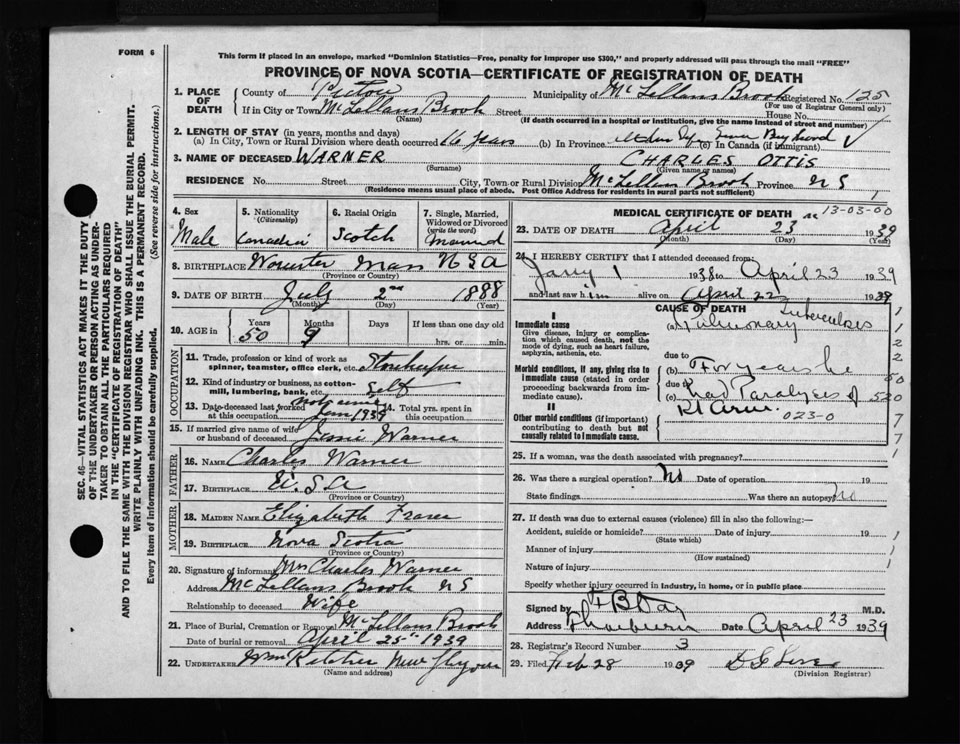 FORM 6
This form if placed in an envelope, marked "Dominion Statistics—Free, penalty for improper use $300," and properly addressed will pass through the mail "FREE"
PROVINCE OF NOVA SCOTIA—CERTIFICATE OF REGISTRATION OF DEATH
1. PLACE OF DEATH
County of Pictou Municipality of McLellans Brook Registered No. 125
(For use of Registrar General only)
If in City or Town McLellans Brook Street House No.
(Name) (If death occurred in a hospital or institution, give the name instead of street and number)
2. LENGTH OF STAY (in years, months and days)
(a) In City, Town or Rural Division where death occurred 16 years (b) In Province (c) In Canada (if immigrant)
3. NAME OF DECEASED WARNER CHARLES OTTIS
(Surname) (Given name or names)
RESIDENCE No. Street City, Town or Rural Division McLellans Brook Province NS
(Residence means usual place of abode. Post Office Address for residents in rural parts not sufficient)
4. Sex Male
5. Nationality (Citizenship) Canadian
6. Racial Origin Scotch
7. Single, Married, Widowed or Divorced (write the word) Married
8. BIRTHPLACE Worcester Mass USA
(Province or Country)
9. DATE OF BIRTH July 2nd 1888
(Month) (Day) (Year)
10. AGE in Years 50 Months 9 Days If less than one day old
hrs. or min.
OCCUPATION
11. Trade, profession or kind of work as spinner, teamster, office clerk, etc. Storekeeper
12. Kind of industry or business, as cotton-mill, lumbering, bank, etc. Self
13. Date deceased last worked at this occupation not since Jan 1938 14. Total yrs. spent in this occupation
15. If married give name of wife or husband of deceased Jessie Warner
FATHER
16. NAME Charles Warner
17. BIRTHPLACE U.S.A
(Province or Country)
MOTHER
18. MAIDEN NAME Elizabeth Fraser
19. BIRTHPLACE Nova Scotia
(Province or Country)
20. Signature of informant Mrs Charles Warner
Address McLellans Brook NS
Relationship to deceased Wife
21. Place of Burial, Cremation or Removal McLellans Brook
Date of burial or removal April 25th 1939
22. UNDERTAKER New Glasgow
(Name and address)
MEDICAL CERTIFICATE OF DEATH 13-03-00
23. DATE OF DEATH April 23 1939
(Month) (Day) (Year)
24. I HEREBY CERTIFY that I attended deceased from:
Jany 1 1938 to April 23 1939
and last saw him alive on April 22 1939
CAUSE OF DEATH
I
Immediate cause (a) Pulmonary Tuberculosis
Give disease, injury or complication which caused death, not the mode of dying, such as heart failure, asphyxia, asthenia, etc.
due to
Morbid conditions, if any, giving rise to immediate cause (stated in order proceeding backwards from immediate cause). (b) For years he
due to
(c) had Paralysis of
Rt Arm
023-0
II
Other morbid conditions (if important) contributing to death but not causally related to immediate cause.
25. If a woman, was the death associated with pregnancy?
26. Was there a surgical operation? No Date of operation 19
State findings Was there an autopsy? No
27. If death was due to external causes (violence) fill in also the following:—
Accident, suicide or homicide? Date of injury 19
(State which)
Manner of injury
(How sustained)
Nature of injury
Specify whether injury occurred in industry, in home, or in public place
Signed by M.D.
Address Thorburn Date April 23 1939
28. Registrar's Record Number 3
29. Filed Feb 28 1939
(Division Registrar)
SEC. 46—VITAL STATISTICS ACT MAKES IT THE DUTY
OF THE UNDERTAKER OR PERSON ACTING AS UNDER-
TAKER TO OBTAIN ALL THE PARTICULARS REQUIRED
IN THE "CERTIFICATE OF REGISTRATION OF DEATH"
AND TO FILE THE SAME WITH THE DIVISION REGISTRAR WHO SHALL ISSUE THE BURIAL PERMIT.
WRITE PLAINLY WITH UNFADING INK. THIS IS A PERMANENT RECORD.
Every item of information should be carefully supplied. (See reverse side for instructions.)